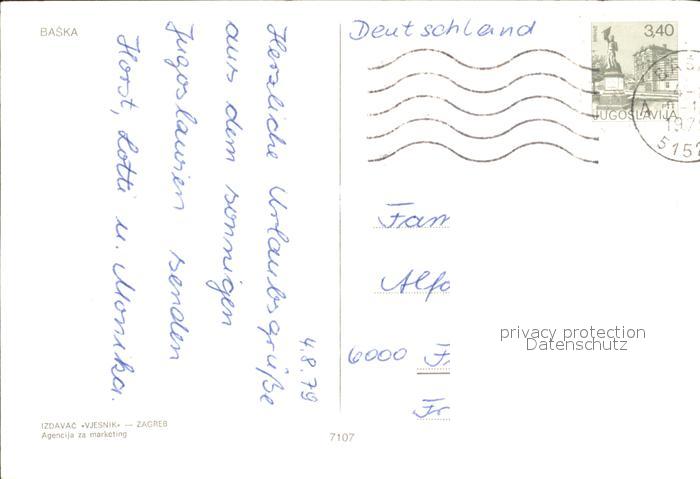 BAŠKA
Deutschland
3,40
JUGOSLAVIJA
5152
4.8.79
Herzliche Urlaubsgrüße
aus dem sonnigen
Jugoslawien senden
Horst, Lotti u. Monika.
Fam
Alfo
6000 F
Fr
privacy protection
Datenschutz
IZDAVAČ «VJESNIK» — ZAGREB
Agencija za marketing
7107